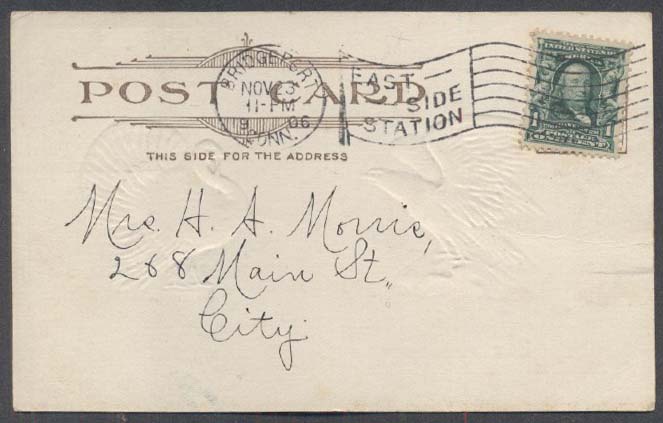 POST CARD
BRIDGEPORT
NOV 23
11-PM
06
CONN.
EAST
SIDE
STATION
1
THIS SIDE FOR THE ADDRESS
Mrs. H. A. Morris,
268 Main St.,
City.